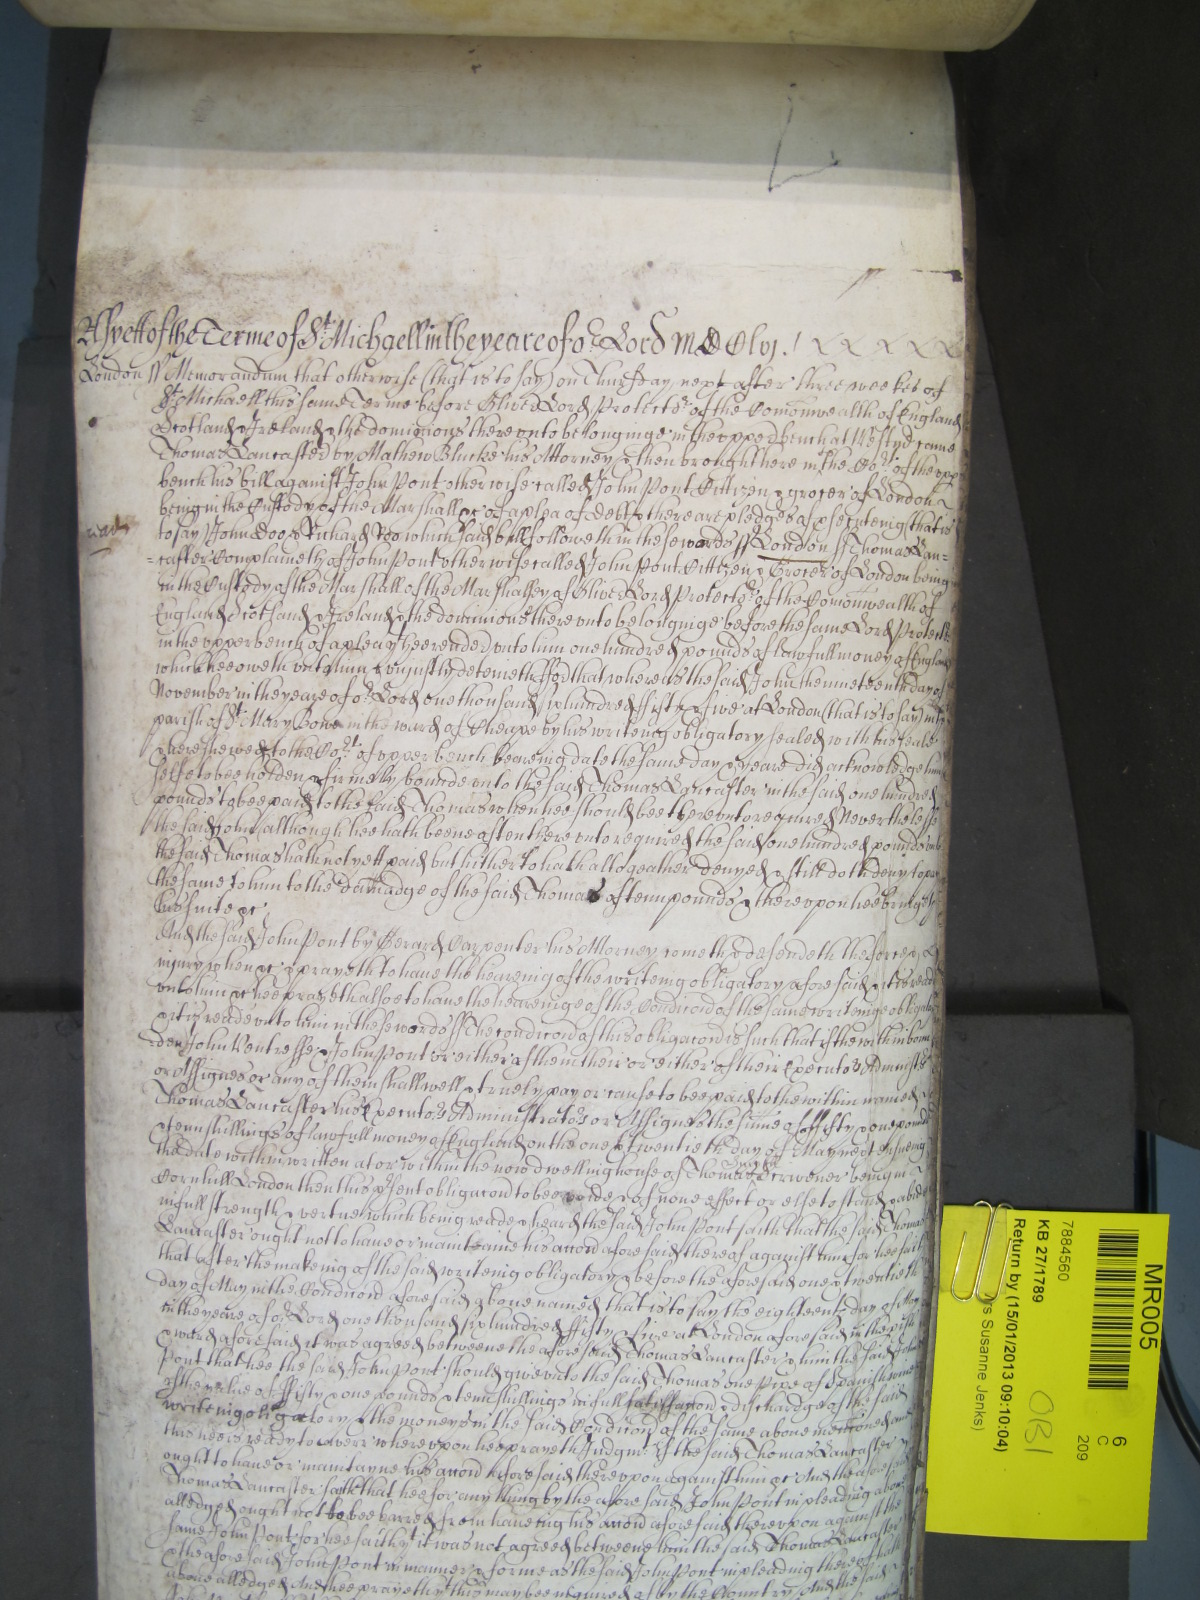 As yett of the Terme of St Michaell in the yeare of or Lord MDClvj.
London ss Memorandum that otherwise (that is to say) on Thursday next after three weekes of
St Michaell this same Terme before Oliver Lord Protector of the Comonwealth of England
Scotland & Ireland & the dominions thereunto belonginge in the upper bench at Westmr came
Thomas Lancaster by Mathew Blucke his Attorney & then brought here in the Cort of the upp
bench his bill against John Pont otherwise called John Pont Cittizen & grocer of London
being in the Custody of the Marshall &c of a plea of debt & there are pledges of prosecuteinge (that is
to say) John Doo & Richard Roo which said bill followeth in these words ss London ss Thomas Lan=
=caster Complaineth of John Pont otherwise called John Pont Cittizen & Grocer of London being
in the Custody of the Marshall of the Marshalsey of Oliver Lord Protector of the Comonwealth of
England Scotland & Ireland & the dominions thereunto belonginge before the same Lord Protector
in the upper bench of a plea that hee render unto him one hundred pounds of lawfull money of England
which hee oweth unto him & unjustly deteineth ffor that whereas the said John the nineteenth day of
November in the yeare of or Lord one thousand six hundred fifty & five at London (that is to say) in the
parish of St Mary Bowe in the ward of Cheape by his writeing obligatory sealed with his seale
& here shewed to the Cort of upper bench beareing date the same day & yeare did acknowledge him
selfe to bee holden & firmely bounde unto the said Thomas Lancaster in the said one hundred
pounds to bee paid to the said Thomas when hee should bee thereunto required Neverthelesse
the said John although hee hath beene often thereunto required the said one hundred pounds unto
the said Thomas hath not yett paid but hitherto hath altogeather denyed & still doth deny to pay
the same to him to the damadge of the said Thomas of tenn pounds & thereupon hee bringeth
his suite &c
And the said John Pont by Gerard Carpenter his Attorney cometh & defendeth the force &
injury when &c & prayeth to have the heareing of the writeing obligatory aforesaid & it is read
unto him &c hee prayeth alsoe to have the heareinge of the Condicion of the same writeinge obligatory
& it is reade unto him in these words ss The condicion of this obligacon is such that if the within boun
den John Ventresse & John Pont or either of them their or either of their Executors Administrs
or Assignes or any of them shall well & truely pay or cause to bee paid to the within named
Thomas Lancaster his Executors Administrators or Assignes the sume of fifty & one pounds
& tenn shillings of lawfull money of England on the one & twentieth day of May next ensueing
the date within written at or within the now dwelling house of Thomas Scrivener being in
Cornhill London then this present obligacon to bee voide & of none effect or else to stand & abide
in full strength & vertue which being reade & heard the said John Pont saith that the said Thomas
Lancaster ought not to have or maintaine his accon aforesaid thereof against him for hee saith
that after the makeing of the said writeing obligatory & before the aforesaid one & twentieth
day of May in the Condicion aforesaid above named that is to say the eighteenth day of May
in the yeare of or Lord one thousand six hundred fifty & five at London aforesaid in the parish
& ward aforesaid it was agreed betweene the aforesaid Thomas Lancaster & him the said John
Pont that hee the said John Pont should give unto the said Thomas one Pipe of Spanish wine
of the value of fifty & one pounds & tenn shillings in full satisfaccon & dischardge of the said
writeing obligatory & the moneys in the said Condicion of the same above mencioned and
this hee is ready to averr whereupon hee prayeth Judgmt if the said Thomas Lancaster
ought to have or maintayne his accon aforesaid thereupon against him &c And the aforesaid
Thomas Lancaster saith that hee for any thing by the aforesaid John Pont in pleading above
alledged ought not to bee barred from haveing his accon aforesaid thereupon against the
same John Pont for hee saith it was not agreed betweene him the said Thomas Lancaster
& the aforesaid John Pont in manner & forme as the said John Pont in pleading thereof hath
above alledged And hee prayeth this may bee enquired of by the Country And the said
MR005
6
C
209
7884560
KB 27/1789
Return by (15/01/2013 09:10:04)
rs Susanne Jenks)
OB1